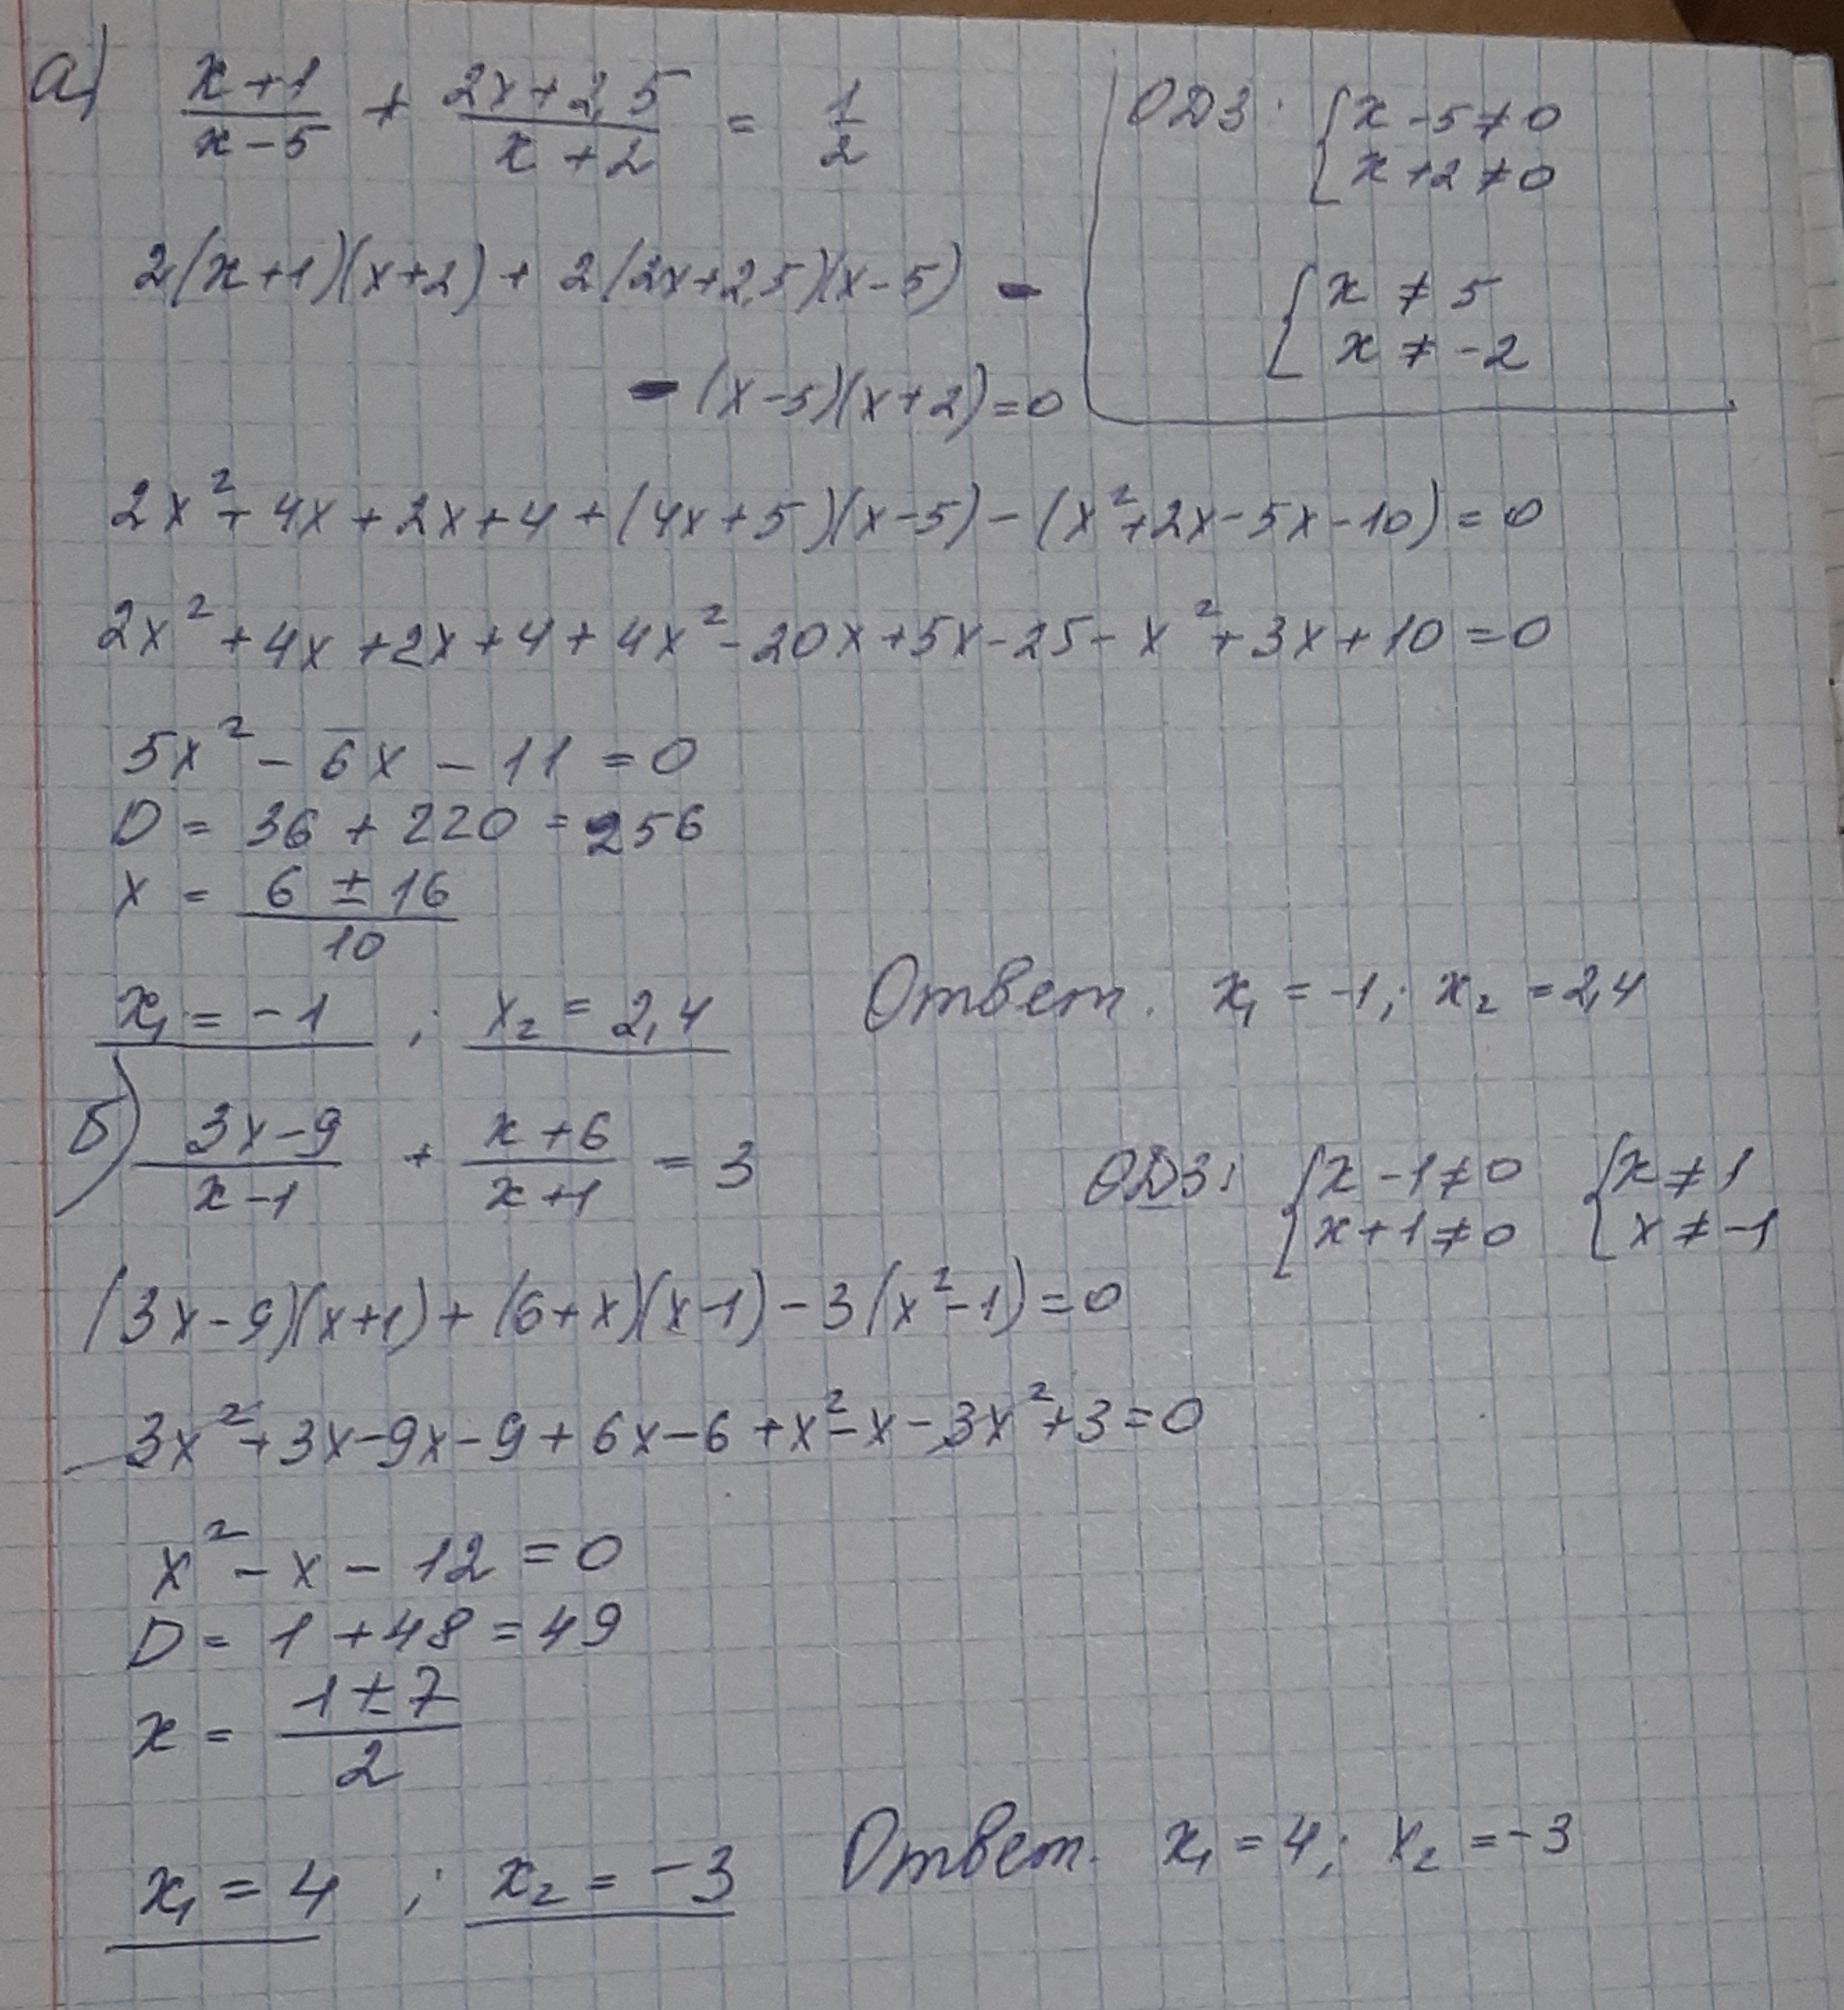 а) (x+1)/(x-5) + (2x+2,5)/(x+2) = 1/2
ОДЗ: { x-5≠0
x+2≠0
{ x ≠ 5
x ≠ -2
2(x+1)(x+2) + 2(2x+2,5)(x-5) -
- (x-5)(x+2)=0
2x²+4x+2x+4+(4x+5)(x-5)-(x²+2x-5x-10)=0
2x²+4x+2x+4+4x²-20x+5x-25-x²+3x+10=0
5x²-6x-11=0
D = 36 + 220 = 256
x = (6 ± 16)/10
x₁ = -1 ; x₂ = 2,4 Ответ. x₁ = -1; x₂ = 2,4
б) (3x-9)/(x-1) + (x+6)/(x+1) = 3
ОДЗ: { x-1≠0 { x≠1
x+1≠0 x≠-1
(3x-9)(x+1)+(6+x)(x-1)-3(x²-1)=0
3x²+3x-9x-9+6x-6+x²-x-3x²+3=0
x²-x-12=0
D = 1+48=49
x = (1±7)/2
x₁ = 4 ; x₂ = -3 Ответ. x₁ = 4; x₂ = -3